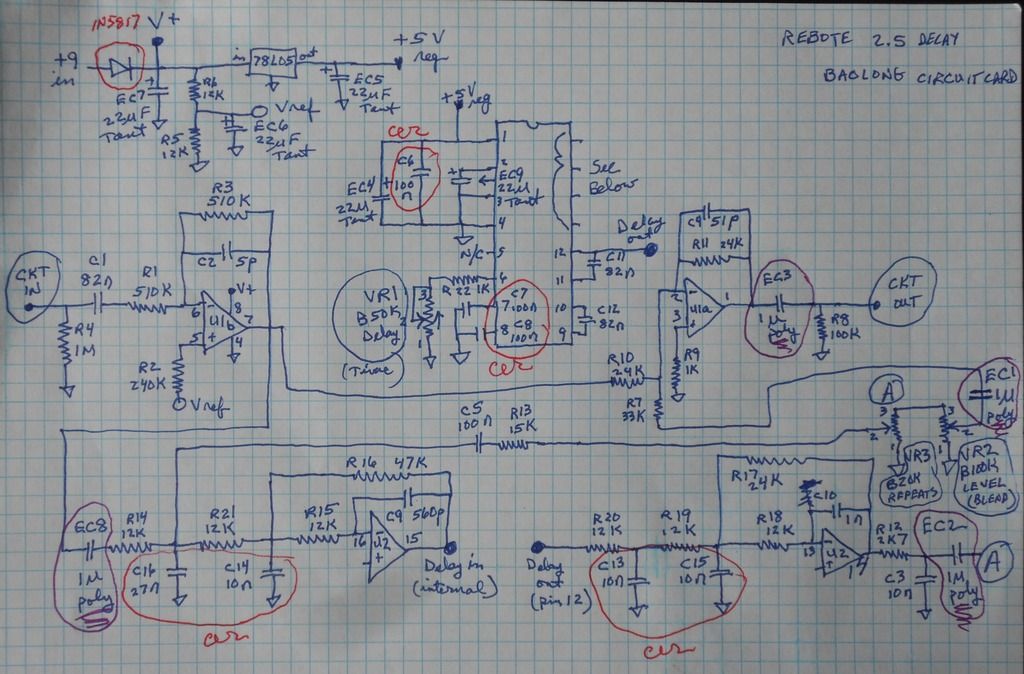 REBOTE 2.5 DELAY
BAOLONG CIRCUITCARD
1N5817
V+
+9
in
in 78L05 out
+5V
reg
EC7
22µF
Tant
R6
12K
R5
12K
Vref
EC6
22µF
Tant
EC5
22µF
Tant
+5V
reg
cer
C6
100n
EC4
22µ
Tant
EC9
22µ
Tant
1
2
3
4
N/C
5
6
7
8
See
Below
12
11
10
9
Delay
out
C11
82n
C12
82n
R22 1K
C7
100n
C8
100n
cer
VR1
B50K
Delay
(Time)
3
2
1
CKT
IN
C1
82n
R1
510K
R4
1M
R3
510K
C2
5p
V+
U1b
6
5
8
7
4
R2
240K
Vref
C4 51p
R11 24K
2
3
U1a
1
R10
24K
R7
33K
R9
1K
EC3
1µ
poly
R8
100K
CKT
OUT
EC1
1µ
poly
A
3
2
1
3
2
1
VR3
B20K
REPEATS
VR2
B100K
LEVEL
(BLEND)
C5
100n
R13
15K
R16 47K
EC8
1µ
poly
R14
12K
R21
12K
R15
12K
C9
560p
16
U2
15
C16
27n
C14
10n
cer
Delay in
(internal)
Delay
out
(pin 12)
R20
12K
R19
12K
R17
24K
R18
12K
C10
1n
13
U2
14
C13
10n
C15
10n
cer
R12
2K7
C3
10n
EC2
1µ
poly
A